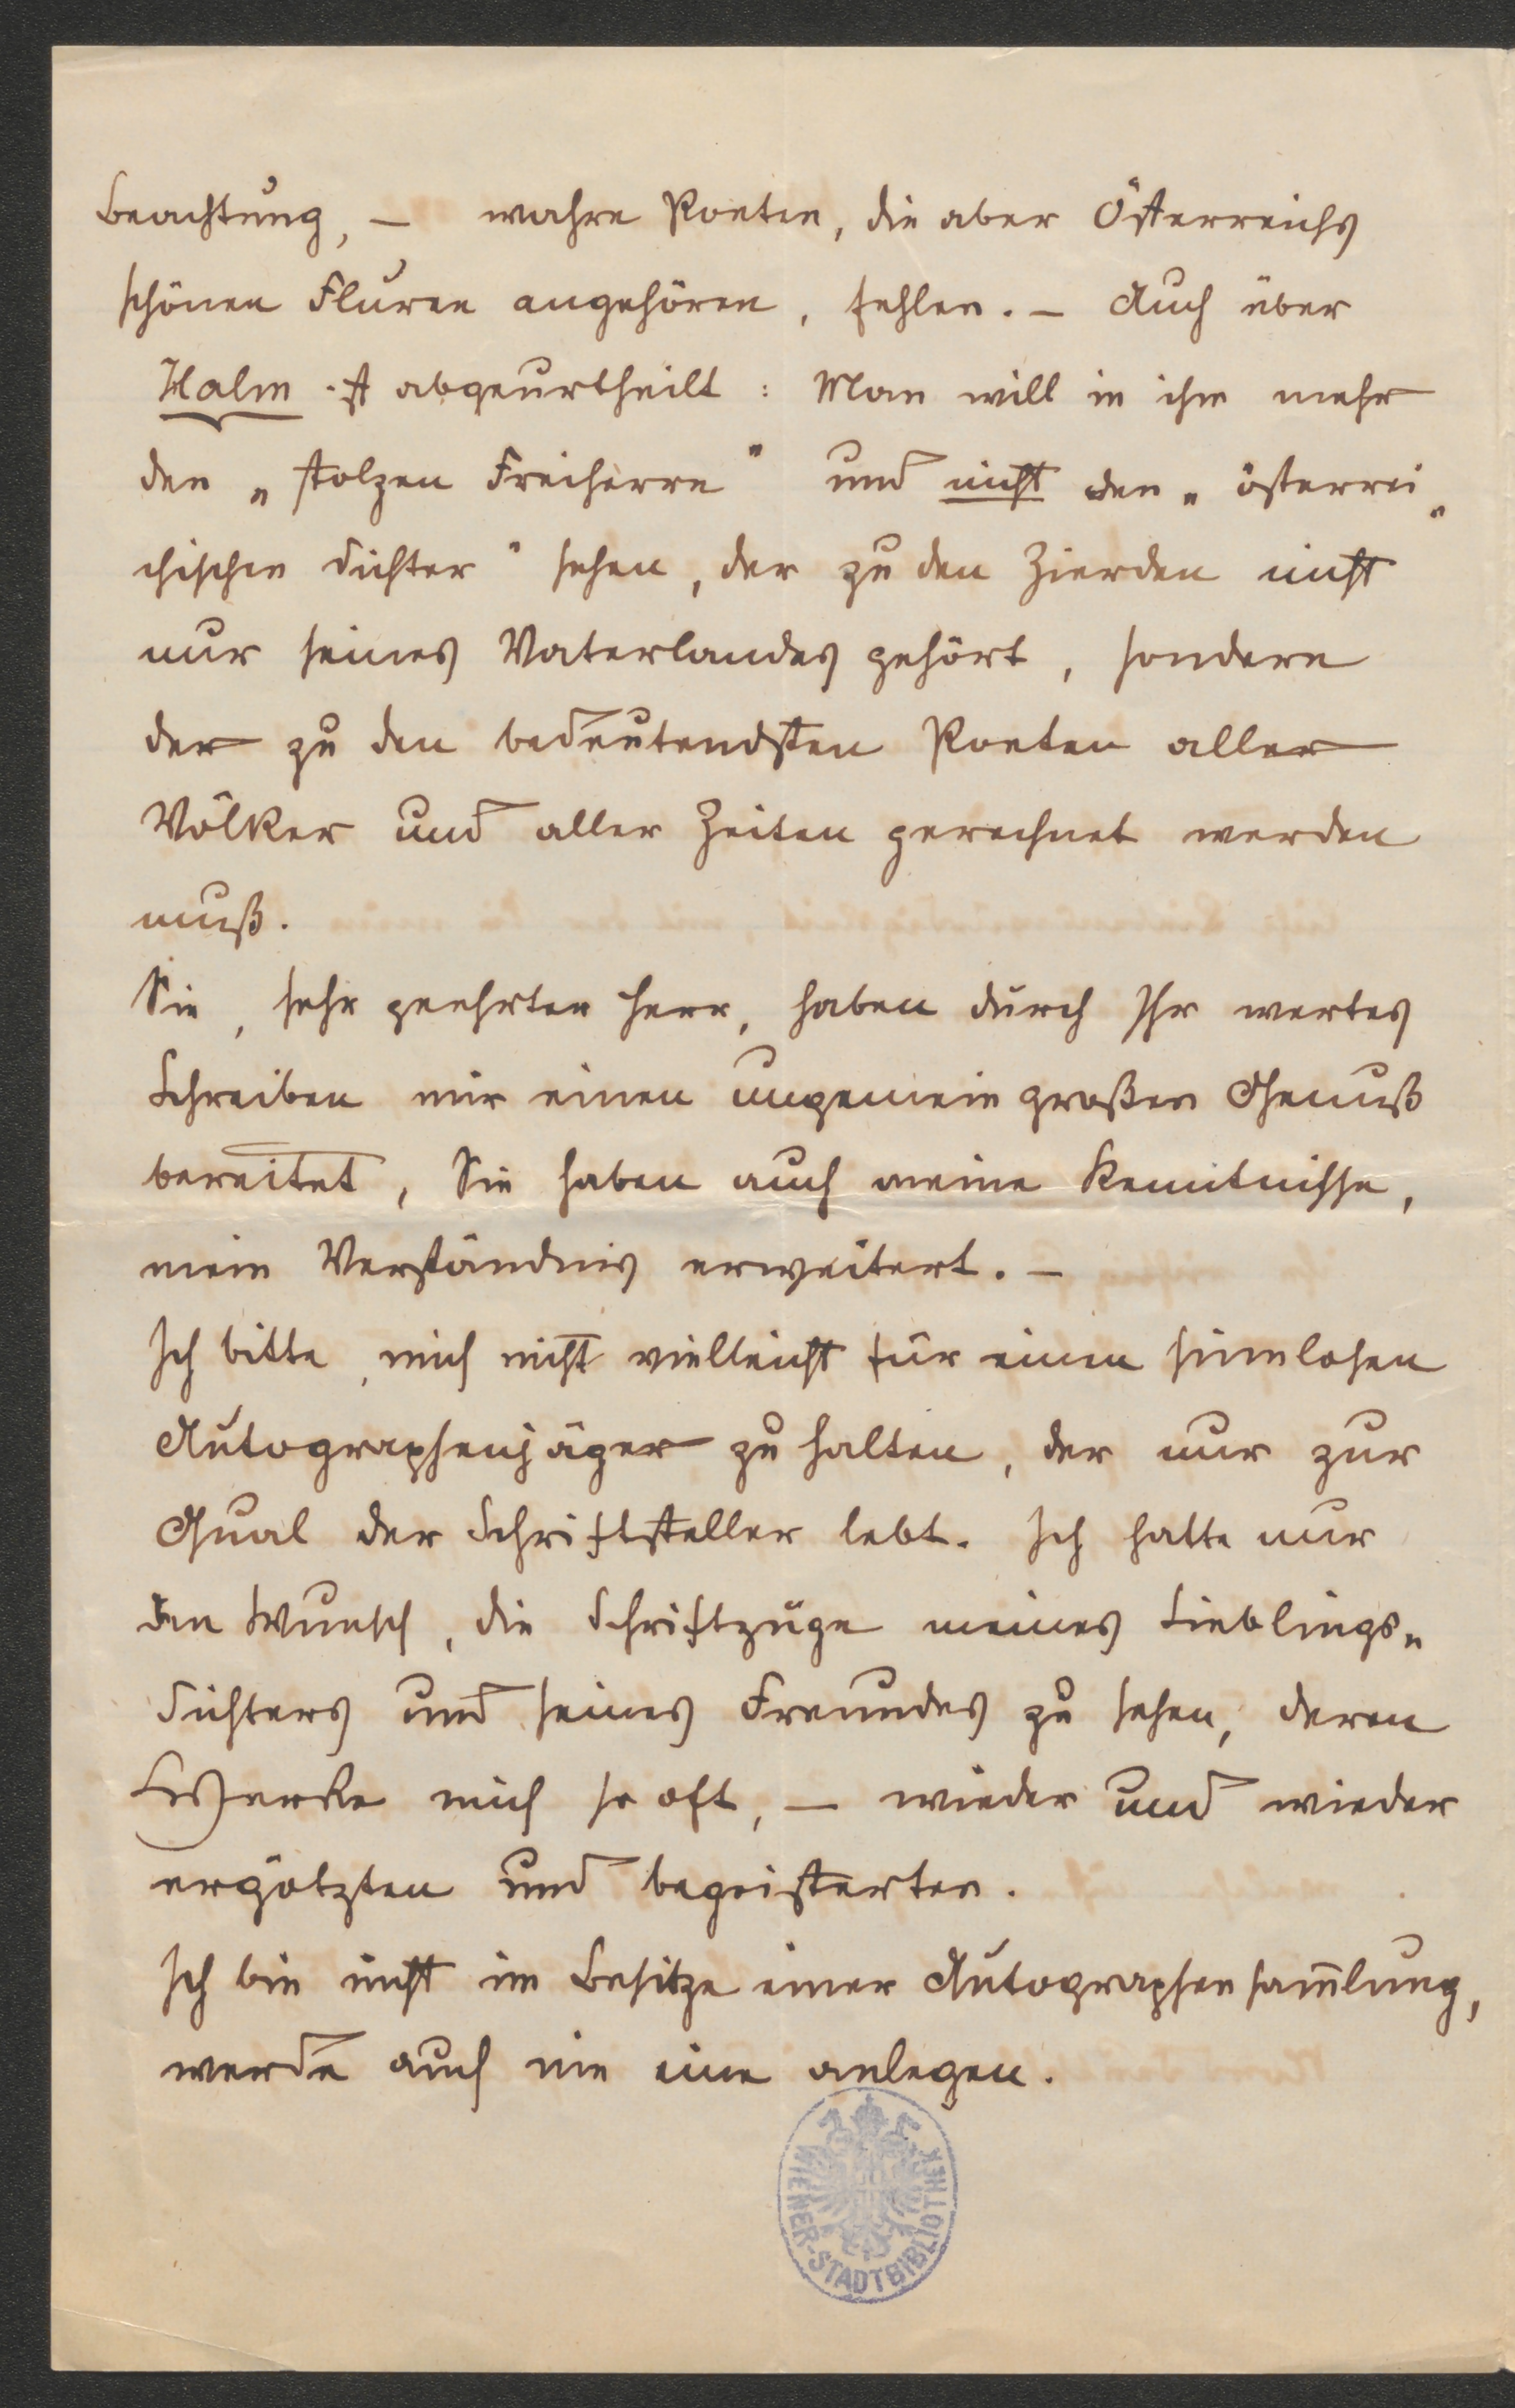 Beachtung, – wahre Poeten, die aber Österreichs
schönen Fluren angehören, fehlen. – Auch über
Halm ist abgeurtheilt: Man will in ihm mehr
den „stolzen Freiherrn" und nicht den „österrei„
chischen Dichter" sehen, der zu den Zierden nicht
nur seines Vaterlandes gehört, sondern
der zu den bedeutendsten Poeten aller
Völker und aller Zeiten gerechnet werden
muß.
Sie, sehr geehrter Herr, haben durch Ihr wertes
Schreiben mir einen ungemein großen Genuß
bereitet, Sie haben auch meine Kenntnisse,
mein Verständnis erweitert. –
Ich bitte, mich nicht vielleicht für einen sinnlosen
Autographenjäger zu halten, der nur zur
Qual der Schriftsteller lebt. Ich hatte nur
den Wunsch, die Schriftzüge meines Lieblings„
Dichters und seines Freundes zu sehen, deren
Werke mich so oft, – wieder und wieder
ergötzten und begeisterten.
Ich bin nicht im Besitze einer Autographensam̄lung,
werde auch nie eine anlegen.
WIENER-STADTBIBLIOTHEK